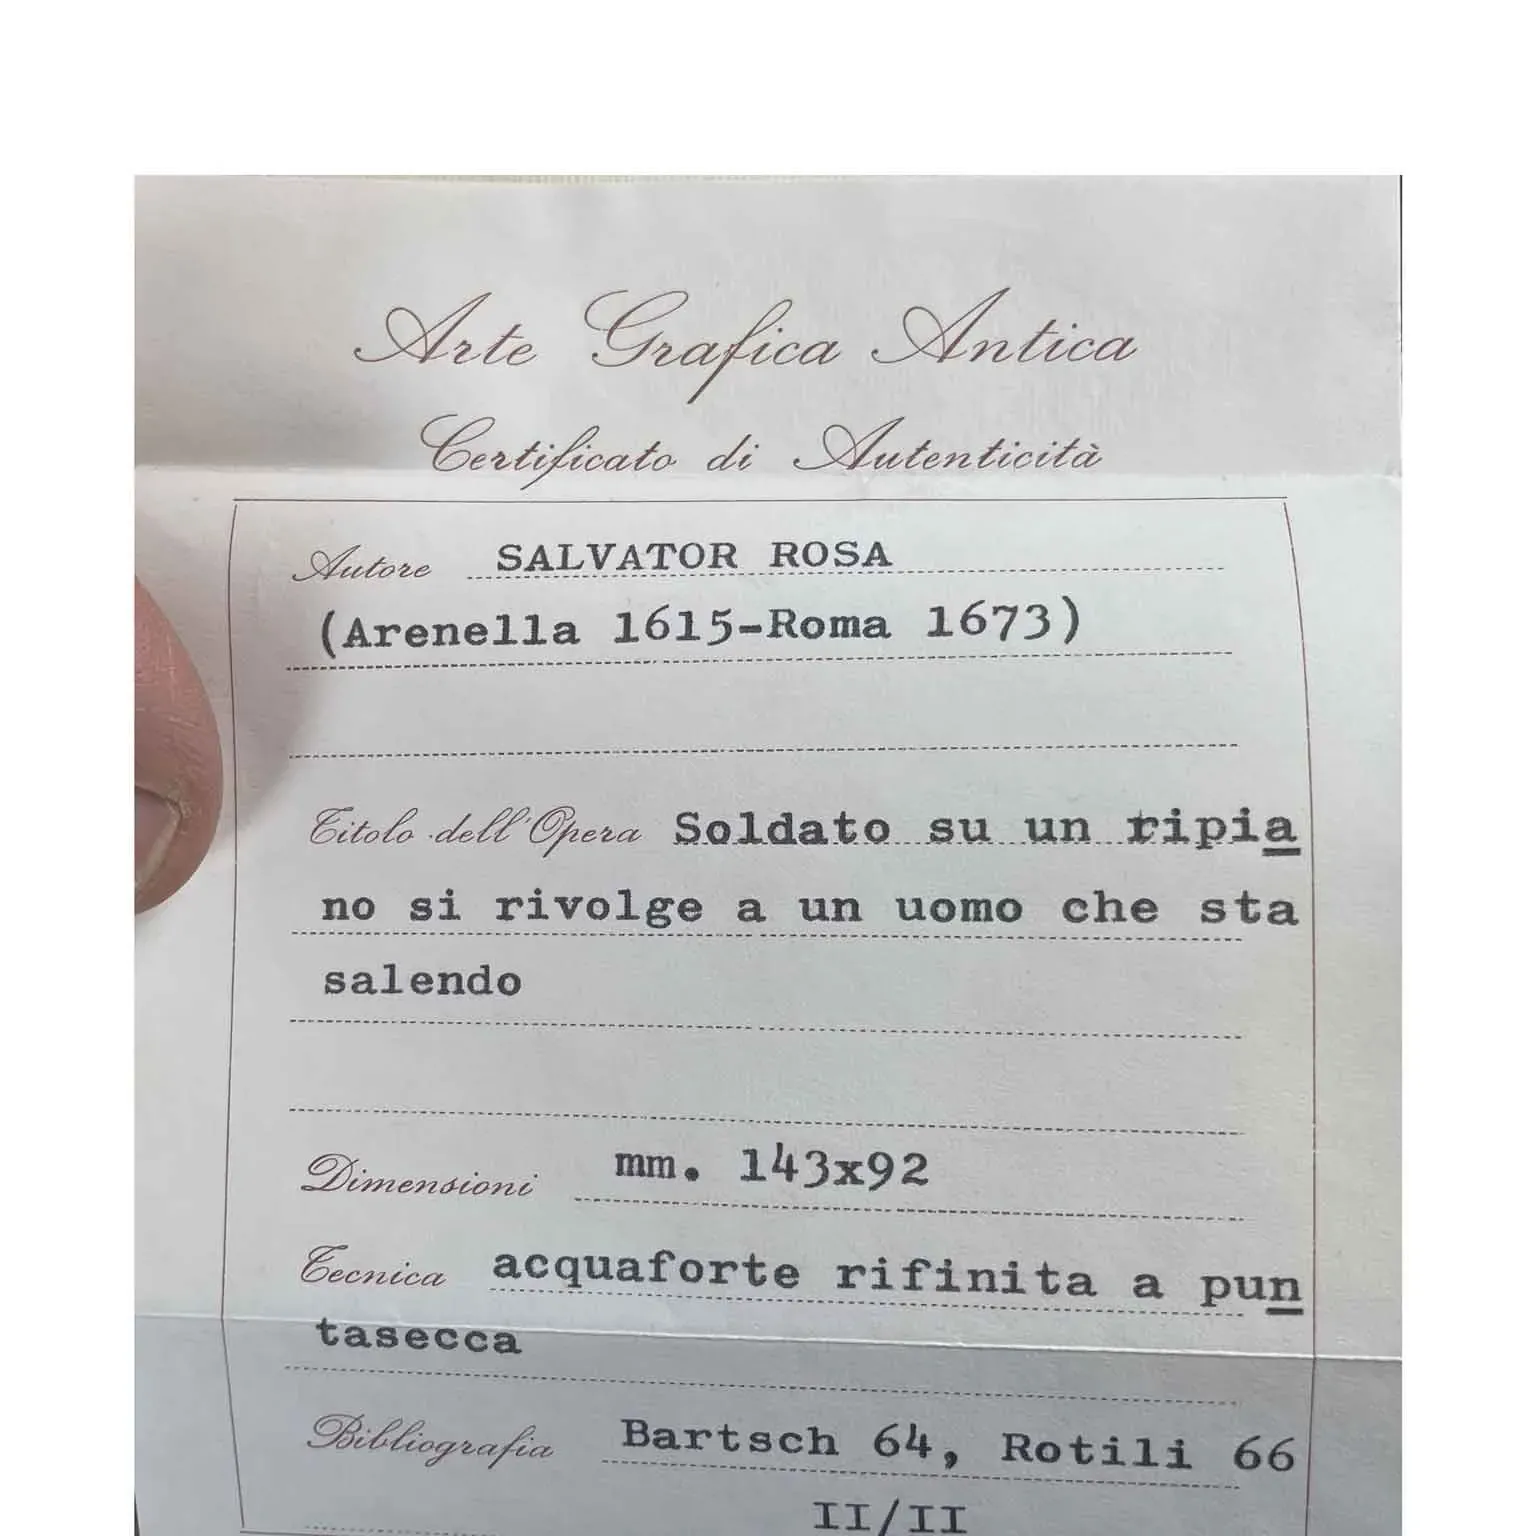 Arte Grafica Antica
Certificato di Autenticità
Autore SALVATOR ROSA
(Arenella 1615-Roma 1673)
Titolo dell'Opera Soldato su un ripia
no si rivolge a un uomo che sta
salendo
Dimensioni mm. 143x92
Tecnica acquaforte rifinita a pun
tasecca
Bibliografia Bartsch 64, Rotili 66
II/II